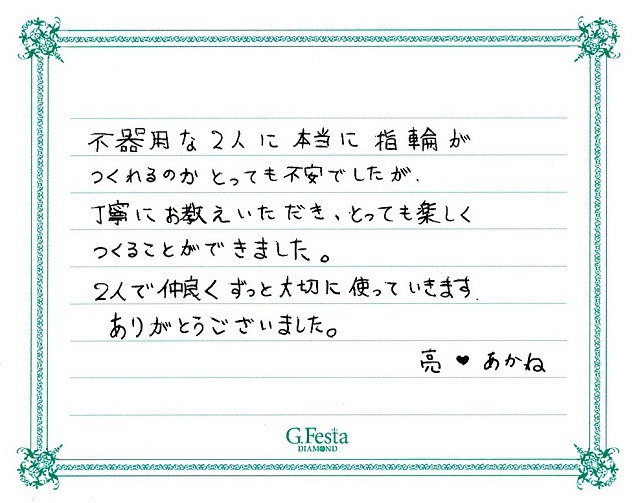 不器用な2人に本当に指輪が
つくれるのかとっても不安でしたが、
丁寧にお教えいただき、とっても楽しく
つくることができました。
2人で仲良くずっと大切に使っていきます.
ありがとうございました。
亮 ♥ あかね
G.Festa
DIAMOND